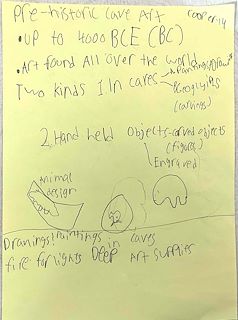 Pre-historic Cave Art
• UP to 4000 BCE (BC)
• Art found All over the world
Two Kinds 1 In caves
(carvings)
2. Hand held Objects-carved objects
(figures)
Engraved
Animal
design
Drawings/Paintings in caves
fire for lights Deep Art supplies